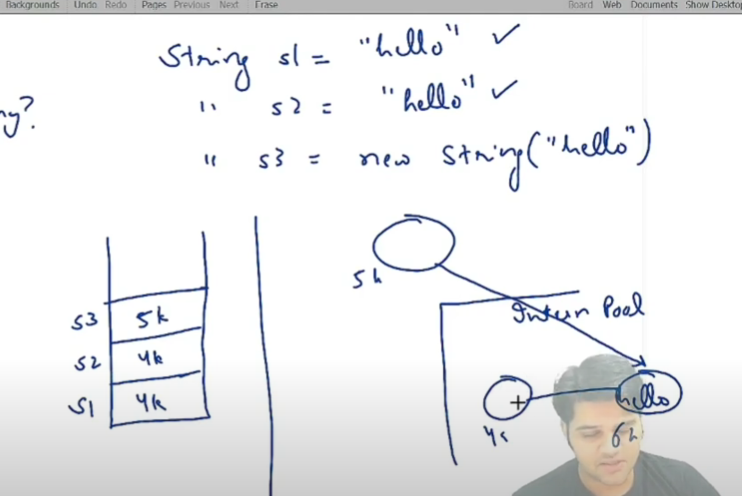 Backgrounds Undo Redo Pages Previous Next Erase Board Web Documents Show Desktop
String s1 = "hello" ✓
" s2 = "hello" ✓
" s3 = new String("hello")
ny?
5k
Intern Pool
s3 5k
s2 4k
s1 4k
hello
4k
6k